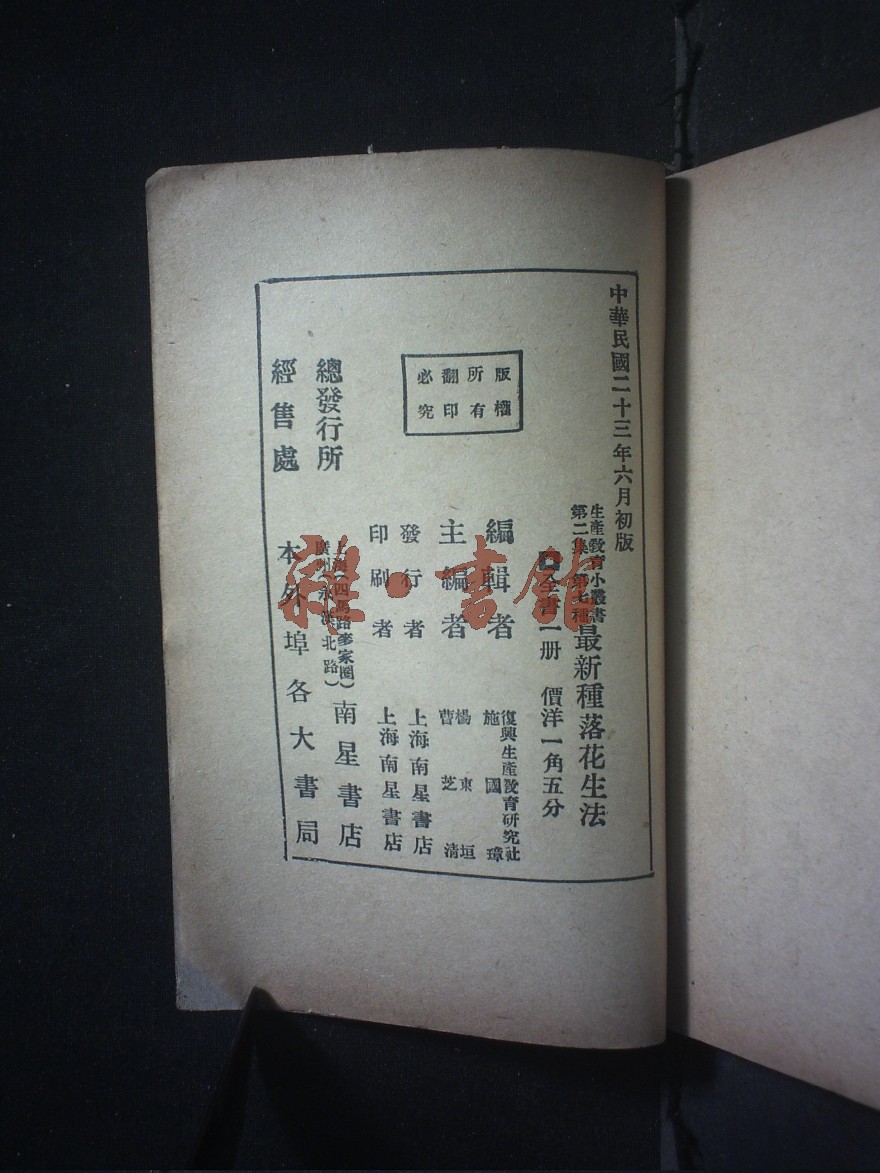 中華民國二十三年六月初版
生產教育小叢書
第二集第七種
最新種落花生法
全書一册 價洋一角五分
版權
所有
翻印
必究
編輯者 復興生產教育研究社
施國璋
主編者 楊東垣
曹芝清
發行者 上海南星書店
印刷者 上海南星書店
總發行所 上海(四馬路麥家圈)
廣州(永漢北路)
南星書店
經售處 本外埠各大書局
雜·書館